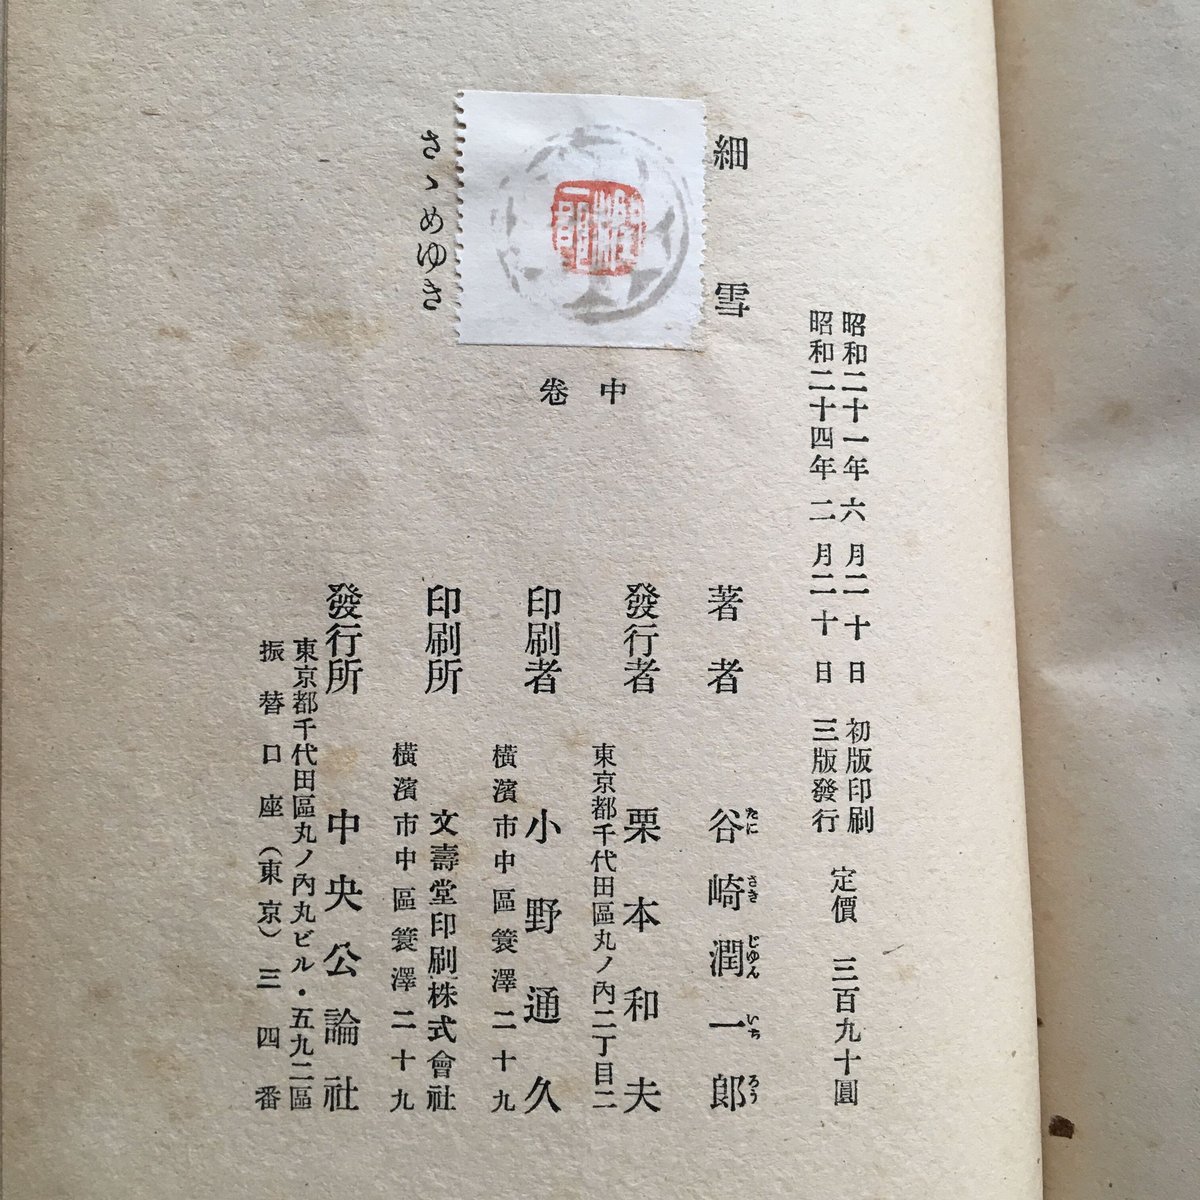 昭和二十一年六月二十日 初版印刷
昭和二十四年二月二十日 三版發行
定價 三百九十圓
細雪
中卷
さゝめゆき
著者 谷崎潤一郎
たに さき じゆん いち ろう
發行者 栗本和夫
東京都千代田區丸ノ內二丁目二
印刷者 小野通久
橫濱市中區簑澤二十九
印刷所 文壽堂印刷株式會社
橫濱市中區簑澤二十九
發行所 中央公論社
東京都千代田區丸ノ內丸ビル・五九二區
振替口座(東京)三四番